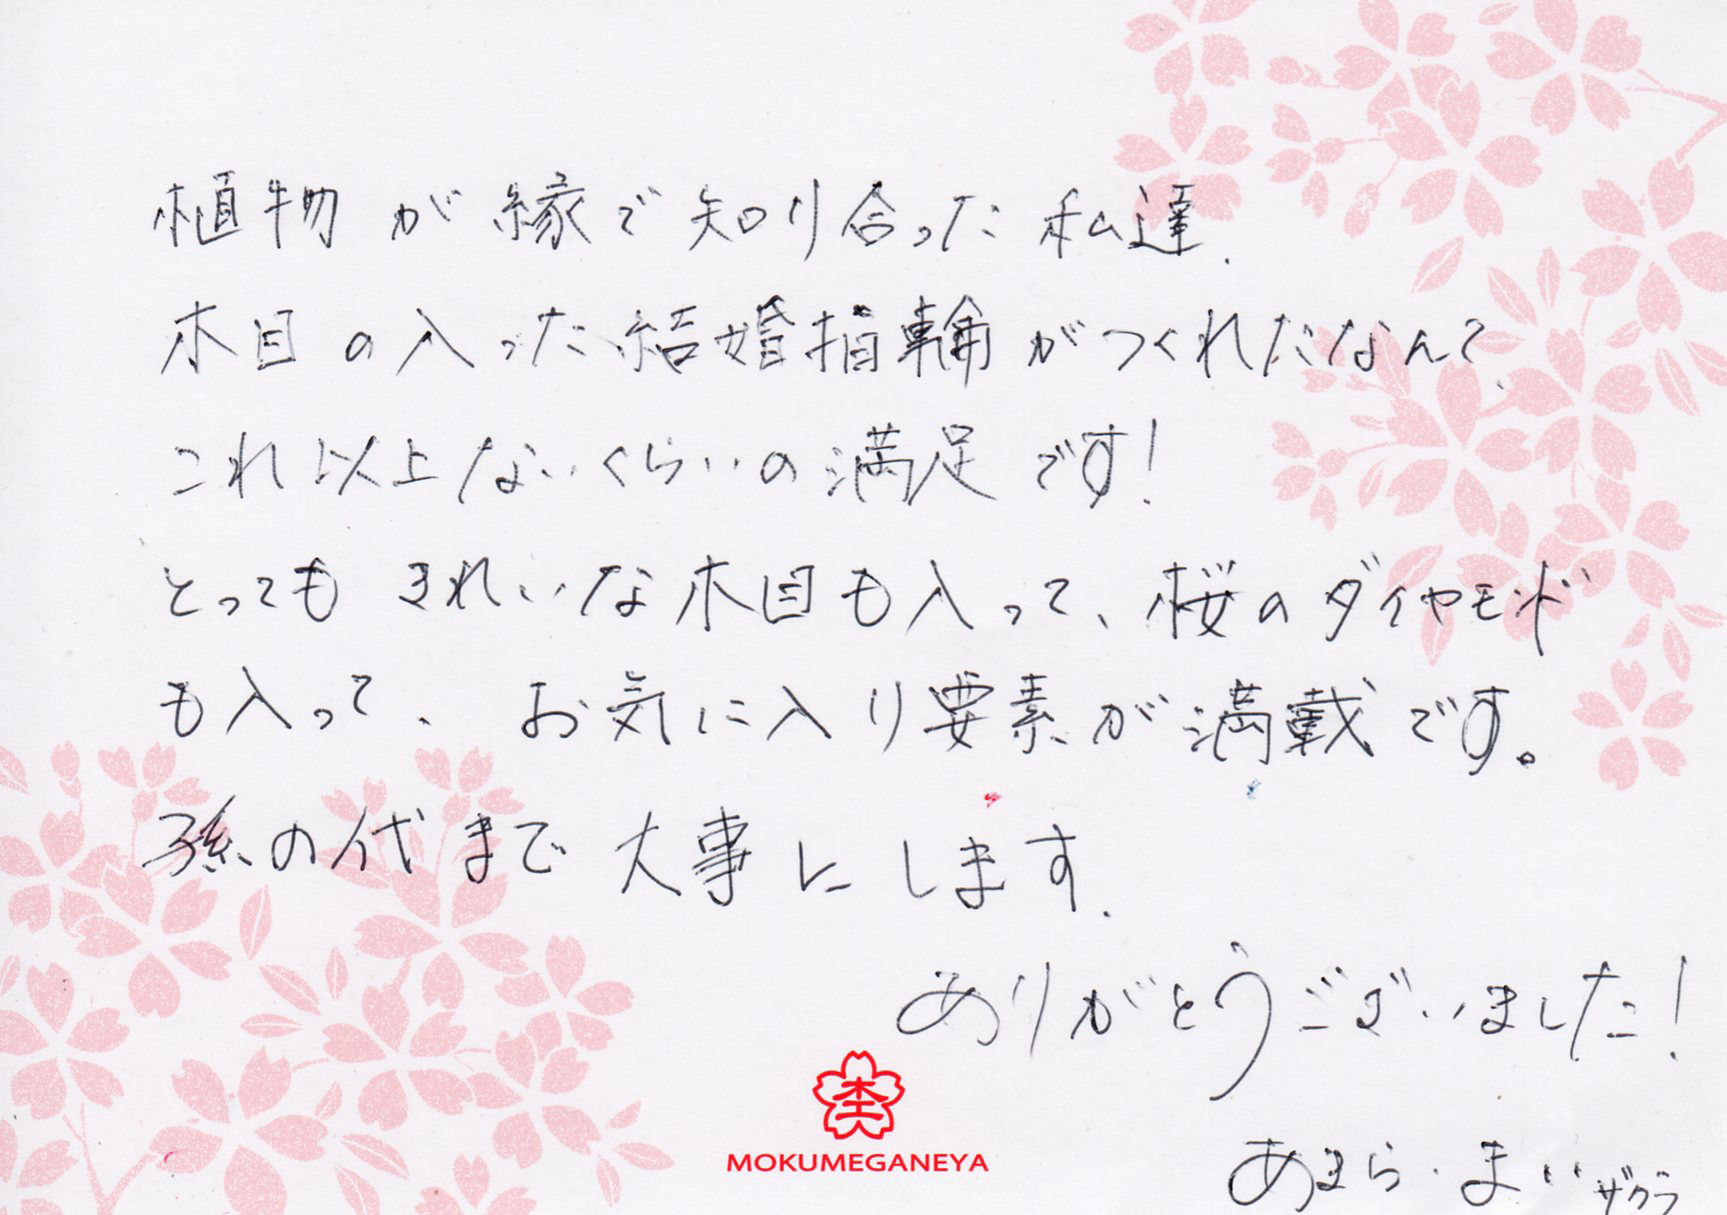 植物が縁で知り合った私達.
木目の入った結婚指輪がつくれだなんて、
これ以上ないくらいの満足です!
とってもきれいな木目も入って、桜のダイヤモンド
も入って、お気に入り要素が満載です。
孫の代まで大事にします.
ありがとうございました!
杢
MOKUMEGANEYA
あまら・まい
ザクラ